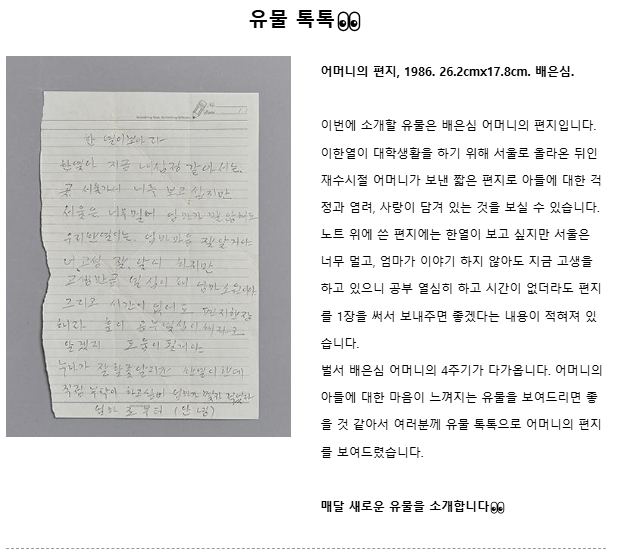 유물 톡톡👀
한 열이보아라
한열아 지금 내심정 같아서는
곳 서울가서 너무 보고 싶지만
서울은 너무멀어 엄마가 말 안해도
우리한열이는 엄마마음 잘알거야
너 고생 잘 알지 하지만
고생만큼 열심히 해 엄마소원이야
그리고 시간이 없어도 편지한장
해라 공부열심히해라고
알겠지 도움이될거야
누나가 한열이한테
직접 부탁이 하고싶어 엄마가 몇자 적었다
엄마 로 부터 (안녕)
어머니의 편지, 1986. 26.2cmx17.8cm. 배은심.
이번에 소개할 유물은 배은심 어머니의 편지입니다.
이한열이 대학생활을 하기 위해 서울로 올라온 뒤인
재수시절 어머니가 보낸 짧은 편지로 아들에 대한 걱
정과 염려, 사랑이 담겨 있는 것을 보실 수 있습니다.
노트 위에 쓴 편지에는 한열이 보고 싶지만 서울은
너무 멀고, 엄마가 이야기 하지 않아도 지금 고생을
하고 있으니 공부 열심히 하고 시간이 없더라도 편지
를 1장을 써서 보내주면 좋겠다는 내용이 적혀져 있
습니다.
벌써 배은심 어머니의 4주기가 다가옵니다. 어머니의
아들에 대한 마음이 느껴지는 유물을 보여드리면 좋
을 것 같아서 여러분께 유물 톡톡으로 어머니의 편지
를 보여드렸습니다.
매달 새로운 유물을 소개합니다👀